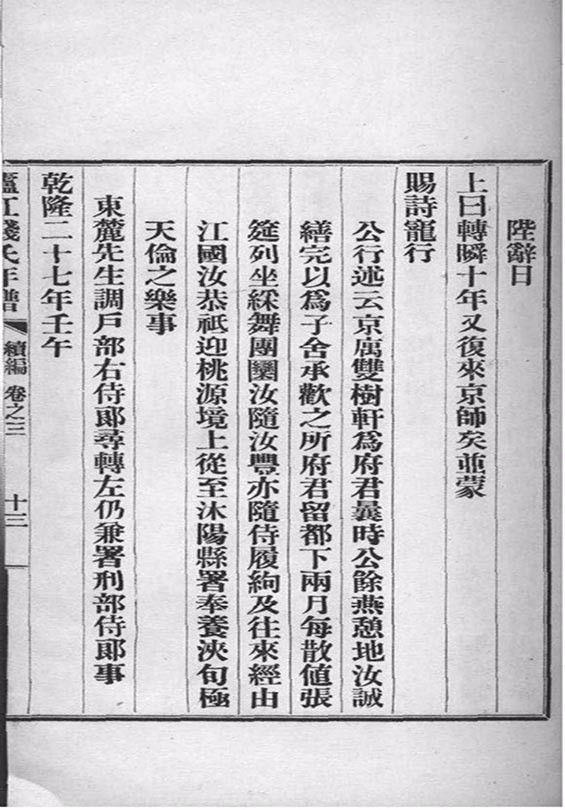 陛辭日
上曰轉瞬十年又復來京師矣並蒙
賜詩寵行
公行述云京寓雙樹軒爲府君曩時公餘燕憩地汝誠
繕完以爲子舍承歡之所府君留都下兩月每散値張
筵列坐綵舞團圞汝隨汝豐亦隨侍履絇及往來經由
江國汝恭祇迎桃源境上從至沐陽縣署奉養浹旬極
天倫之樂事
東麓先生調戸部右侍郞尋轉左仍兼署刑部侍郞事
乾隆二十七年壬午
廬江錢氏年譜 續編 卷之三 十三